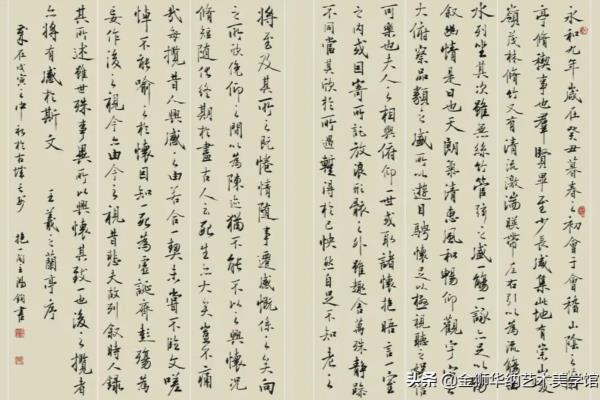 永和九年歲在癸丑暮春之初會于會稽山陰之蘭
亭脩禊事也羣賢畢至少長咸集此地有崇山峻
嶺茂林脩竹又有清流激湍暎帶左右引以為流觴曲
水列坐其次雖無絲竹管弦之盛一觴一詠亦足以暢
敘幽情是日也天朗氣清惠風和暢仰觀宇宙之
大俯察品類之盛所以遊目騁懷足以極視聽之娛信
可樂也夫人之相與俯仰一世或取諸懷抱晤言一室
之內或因寄所託放浪形骸之外雖趣舍萬殊靜躁
不同當其欣於所遇暫得於己怏然自足不知老之
將至及其所之既惓情隨事遷感慨係之矣向
之所欣俛仰之間以為陳迹猶不能不以之興懷況
脩短隨化終期於盡古人云死生亦大矣豈不痛
哉每攬昔人興感之由若合一契未嘗不臨文嗟
悼不能喻之於懷固知一死為虛誕齊彭殤為
妄作後之視今亦由今之視昔悲夫故列敘時人錄
其所述雖世殊事異所以興懷其致一也後之攬者
亦將有感於斯文 王羲之蘭亭序
歲在戊寅之中秋於古城之
頭条 @金狮华纳艺术美学馆